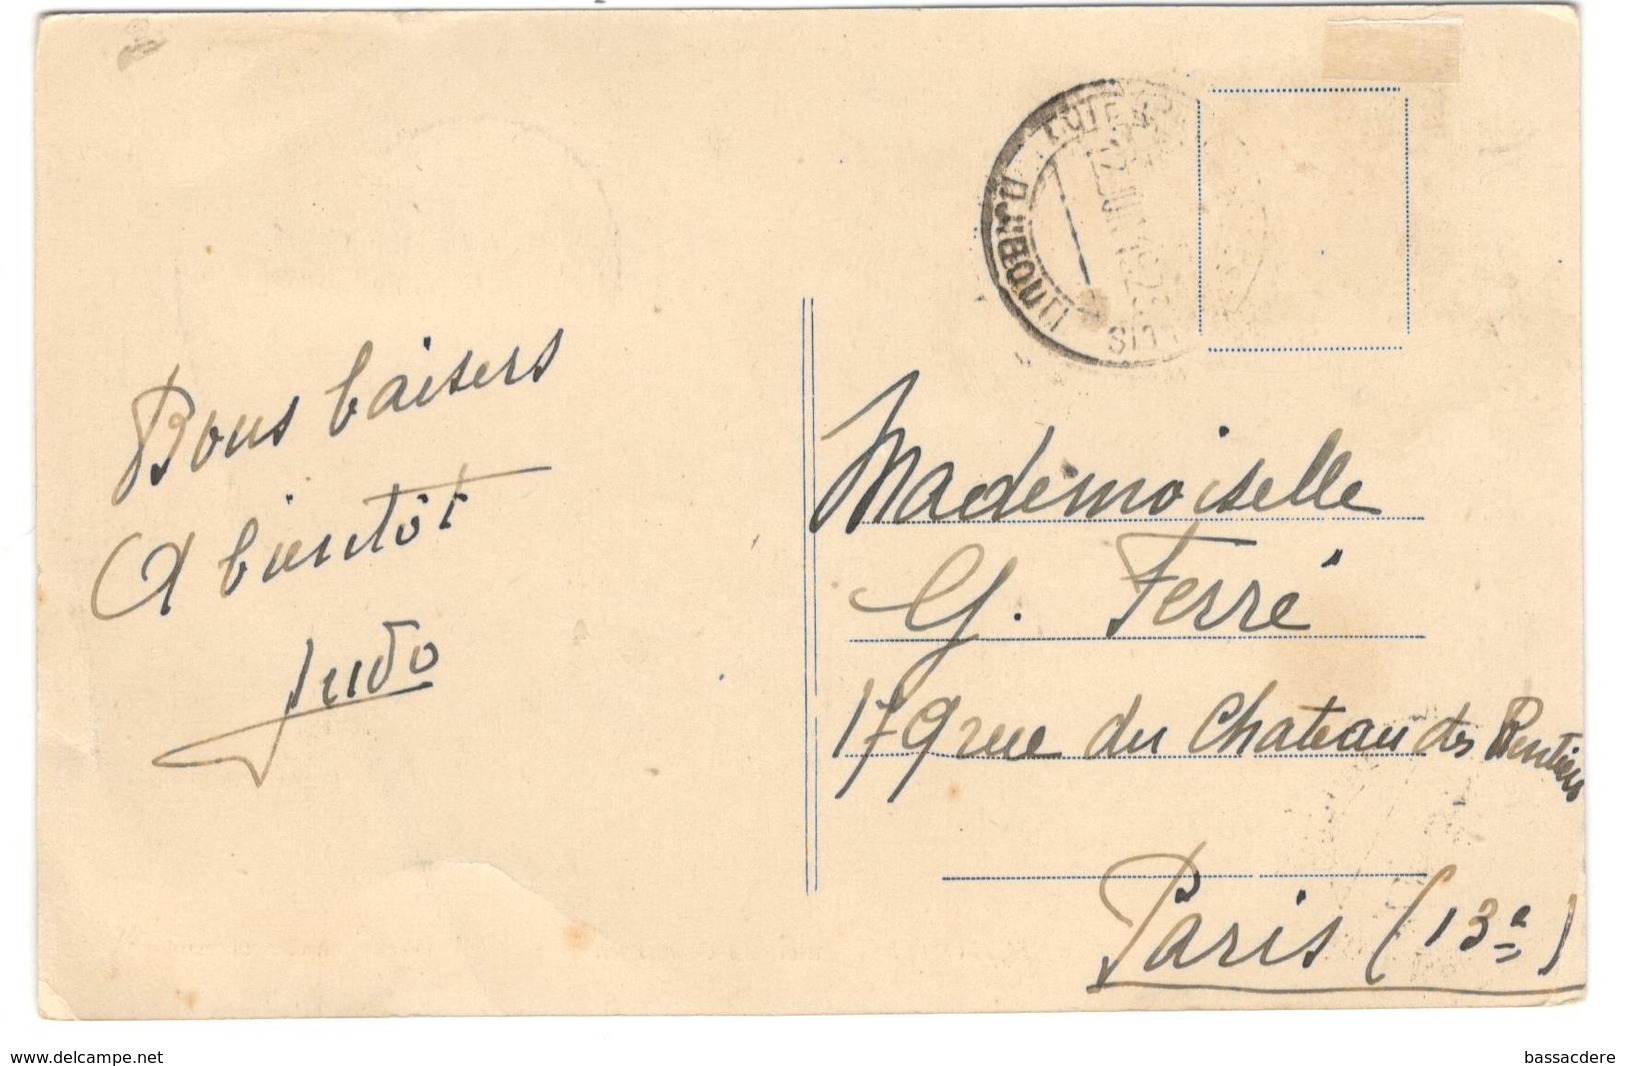 Bons baisers
A bientôt
Judo
DJIBOUTI
Mademoiselle
G. Ferré
179 rue du Chateau des Rentiers
Paris (13e)
www.delcampe.net
bassacdere